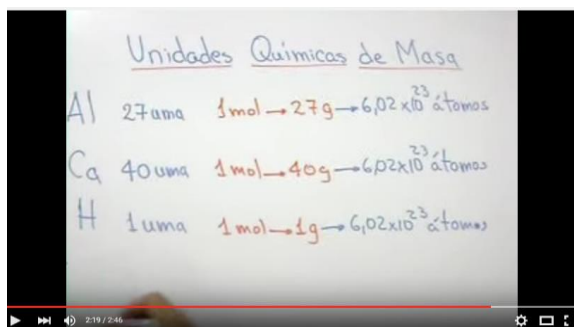 Unidades Químicas de Masa
Al 27uma 1mol→27g→6,02x10²³átomos
Ca 40uma 1mol→40g→6,02x10²³átomos
H 1uma 1mol→1g→6,02x10²³átomos
2:19 / 2:46